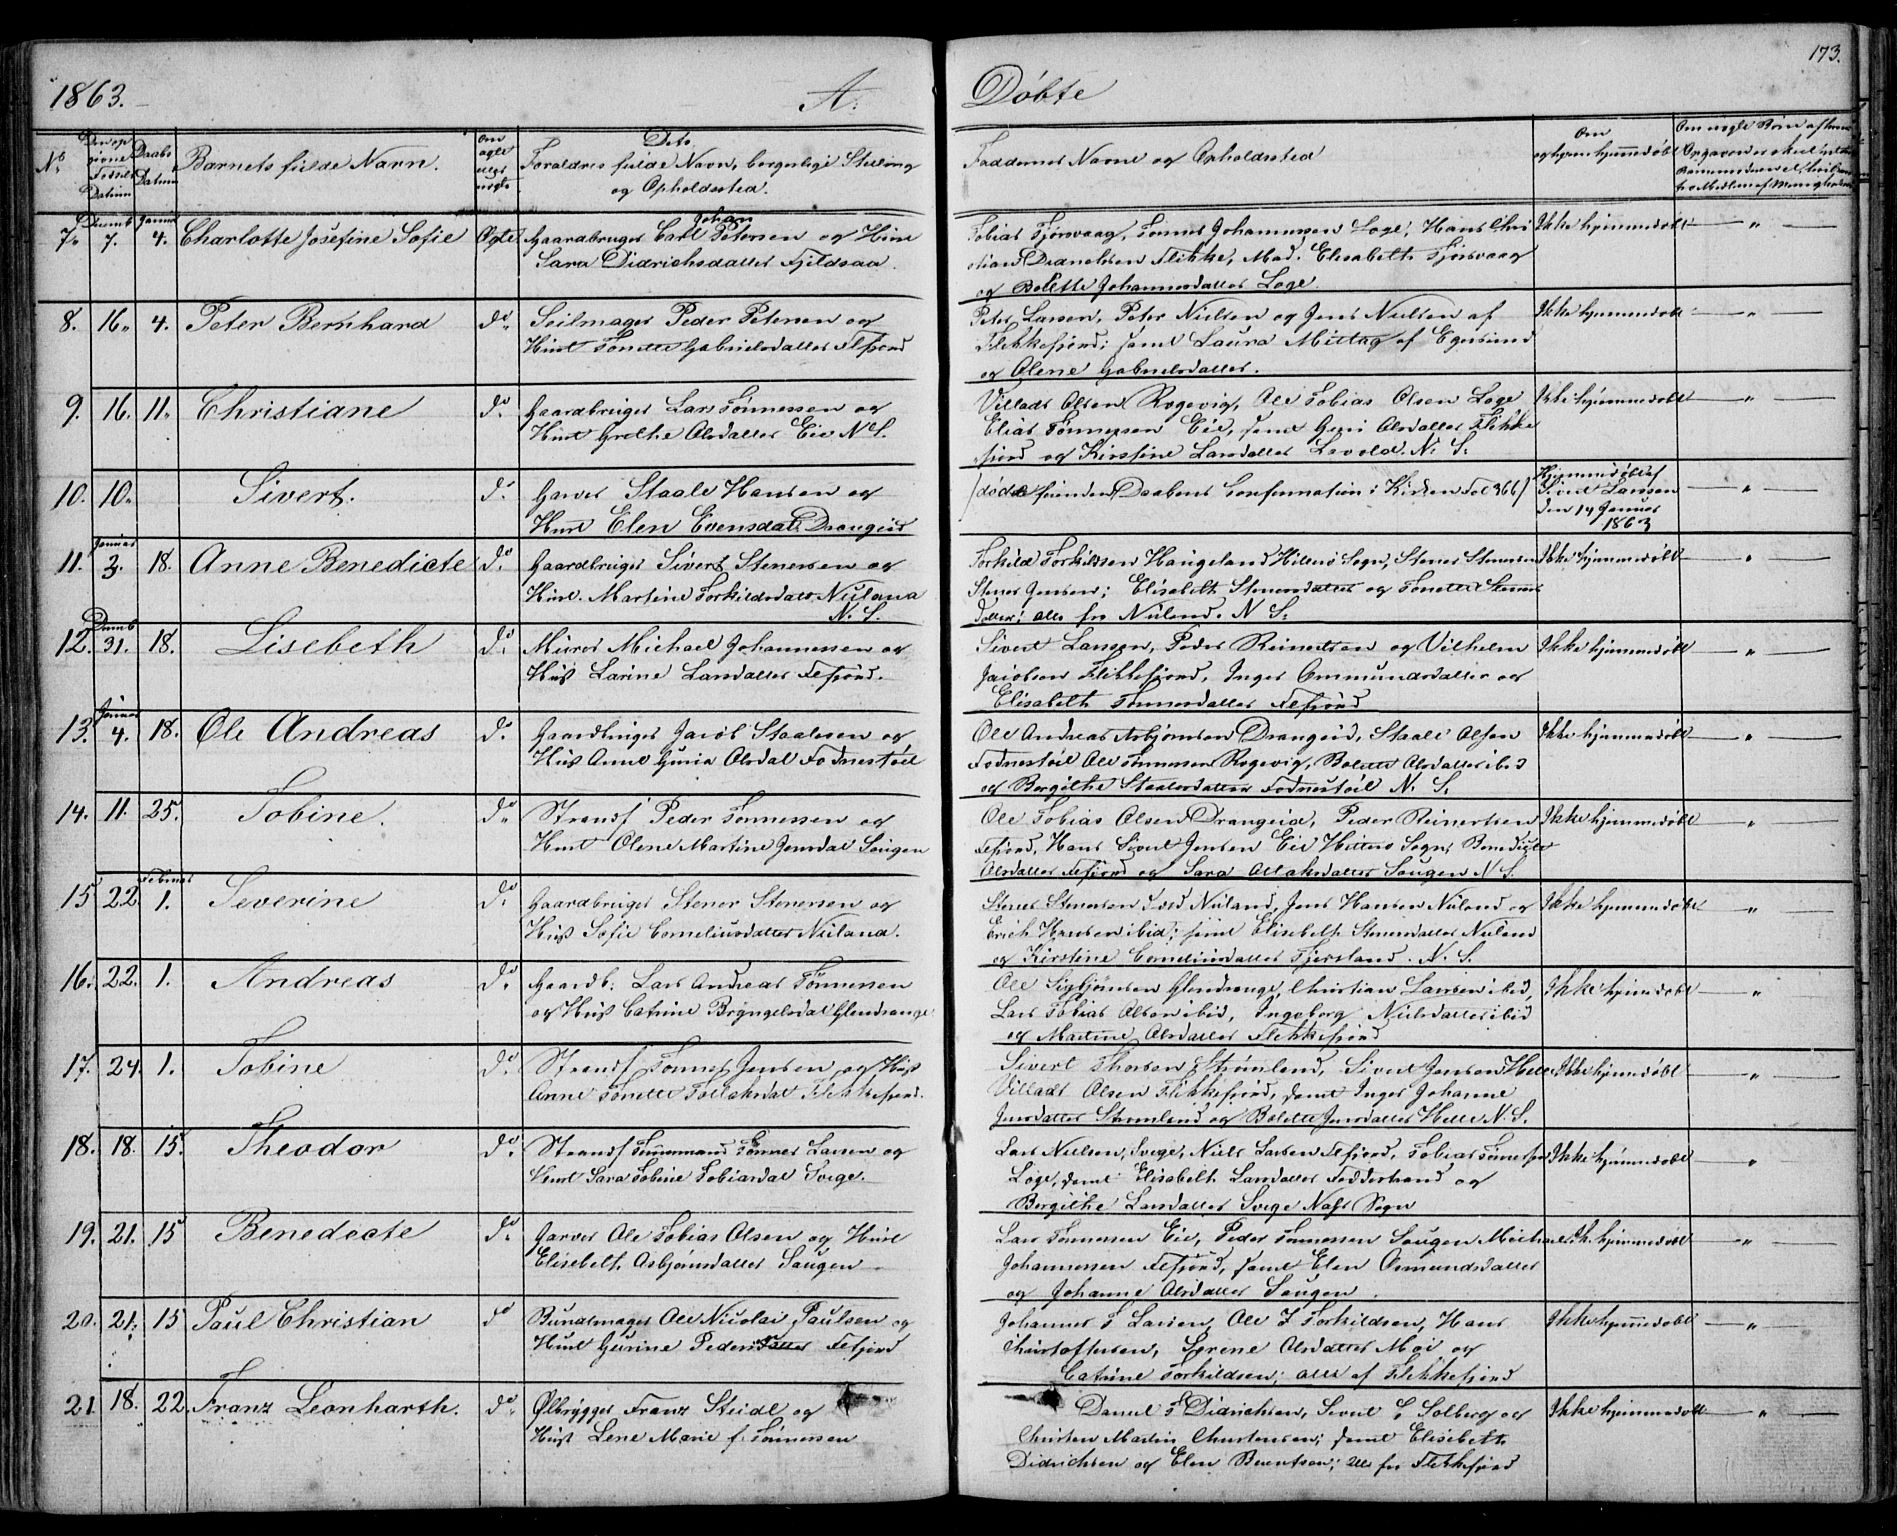 173.
1863. A. Døbte
No. Datum Daabs Datum Barnets fulde Navn. Om ægte eller uægte Dets Forældres fulde Navn, borgerlige Stilling og Opholdssted. Faddernes Navne og Opholdssted Om hjemmedøbt
7. Decemb 7. Januar 4. Charlotte Josefine Sofie Ægte Gaardbruger Carl Johan Petersen og Hust
Sara Didrichsdatter Fjeldsaa.
Tobias Fjørsvaag, Tønnes Johannessen Loge, Hans Chri
stian Flikke, Mad. Elisabeth Fjørsvaag
og Bolette Johannesdatter Loge.
Ikke hjemmedøbt — „ —
8. 16. 4. Peter Bernhard do. Seilmager Peder Petersen og
Hust Tonette Gabrielsdatter Flfjord
Peter Larsen, Peter Nielsen og Jens Nielsen af
Flekkefjord; samt Laura Mittag af Egersund
og Olene Gabrielsdatter.
Ikke hjemmedøbt — „ —
9. 16. 11. Christiane do. Gaardbruger Lars Tønnessen og
Hust Grethe Olsdatter Eie N. S.
Villads Olsen Rogevig, Ole Tobias Olsen Loge
Elias Tønnessen Eie, samt Guri Olsdatter Flekke
fjord og Kirstine Larsdatter Lavold. N. S.
Ikke hjemmedøbt — „ —
10. 10. Sivert. do. Garver Staale Hansen og
Hust Elen Evensdatr. Drangeid
(død førinden Daabens Confirmation i Kirken Fol 366)
Hjemmedøbt af
Sivert Larsen
den 14 Januar
1863
— „ —
11. Januar 3. 18. Anne Benedicte do. Gaardbruger Sivert Stenersen og
Hust. Martine Torkildsdatr. Nuland
N. S.
Torkild Torkildsen Haugeland Hitterø Sogn, Stener Stenersen
Stener Jensen; Elisabeth Stenersdatter og Tonette Steners
datter; alle fra Nuland. N. S.
Ikke hjemmedøbt „ —
12. Decemb 31. 18. Lisebeth do. Murer Michael Johannessen og
Hust Larine Larsdatter Flfjord.
Sivert Larsen, Peder Reinertsen og Vilhelm
Jacobsen Flekkefjord, Inger Ommundsdatter og
Elisabeth Tønnesdatter Flfjord
Ikke hjemmedøbt — „ —
13. Januar 4. 18. Ole Andreas do. Gaardbruger Jacob Staalesen og
Hust Anne Guria Olsdat Fodnestøil
Ole Andreas Asbjørnsen Drangeid, Staale Olsen
Fodnestøil Ole Tønnessen Rogevig, Bolette Olsdatter ibid
og Bergithe Staalesdatter Fodnestøil N. S.
Ikke hjemmedøbt — „ —
14. 11. 25. Tobine. do. Strands. Peder Tønnessen og
Hust Olene Martine Jensdat Saugen
Ole Tobias Olsen Drangeid, Peder Reinertsen
Flfjord, Hans Sivert Jensen Eie Hitterø Sogn, Benedicte
Olsdatter Flfjord og Sara Aslaksdatter Saugen N. S.
Ikke hjemmedøbt — „ —
15 22 Februar 1. Severine do. Gaardbruger Stener Stenersen og
Hust Sofie Corneliusdatter Nuland.
Stener Stenersen Nuland, Jens Hansen Nuland og
Erich Hansen ibid; samt Elisabeth Stenersdatter Nuland
og Kirstine Corneliusdatter Fjersland. N. S.
Ikke hjemmedøbt — „ —
16. 22. 1. Andreas do. Gaardb: Lars Andreas Tønnessen
og Hust Catrine Bryngelsdat Glendrange
Ole Sigbjørnsen Glendrange, Christian Larsen ibid,
Lars Tobias Olsen ibid, Ingeborg Nielsdatter ibid
og Martine Olsdatter Flekkefjord
Ikke hjemmedøbt — „ —
17. 24. 1. Tobine do. Strands. Tønnes Jensen og Hust
Anne Tonette Tollaksdat Flekkefjord.
Sivert Thorsen Strømland, Sivert Jensen Helle
Villads Olsen Flekkefjord, samt Inger Johanne
Jensdatter Strømland og Bolette Jensdatter Helle N. S.
Ikke hjemmedøbt — „ —
18. 18. 15. Theodor do. Strands. Tønnes Larsen og
Hust Sara Tobine Tobiasdat Svege.
Lars Nielsen, Svege, Niels Larsen Flfjord, Tobias Tønnessen
Loge, samt Elisabeth Larsdatter Fedderhand og
Bergithe Larsdatter Svege Næss Sogn
Ikke hjemmedøbt „
19. 21. 15 Benedecte do. Garver Ole Tobias Olsen og Hust
Elisebeth Asbjørnsdatter Saugen
Lars Tønnessen Eie, Peder Tønnessen Saugen Michael
Johannessen Flfjord, samt Elen Osmundsdatter
og Johanne Olsdatter Saugen.
Ik. hjemmedøbt — „ —
20. 21. 15 Paul Christian do Bundtmager Ole Nicolai Paulsen og
Hust Gurine Pedersdatter Flfjord
Johannes T Larsen, Ole T Torkildsen, Hans
Christoffersen, Serene Olsdatter Moi og
Catrine Torkildsen; alle af Flekkefjord
Ikke hjemmedøbt — „ —
21. 18. 22. Franz Leonharth. do. Ølbrygger Franz Steidl og
Hust Lene Marie f. Tønnessen
Daniel T Didrichsen, Sivert S Solberg og
Christen Martin Christensen; samt Elisebeth
Didrichsen og Elen Berentsen; alle fra Flekkefjord
Ikke hjemmedøbt — „ —